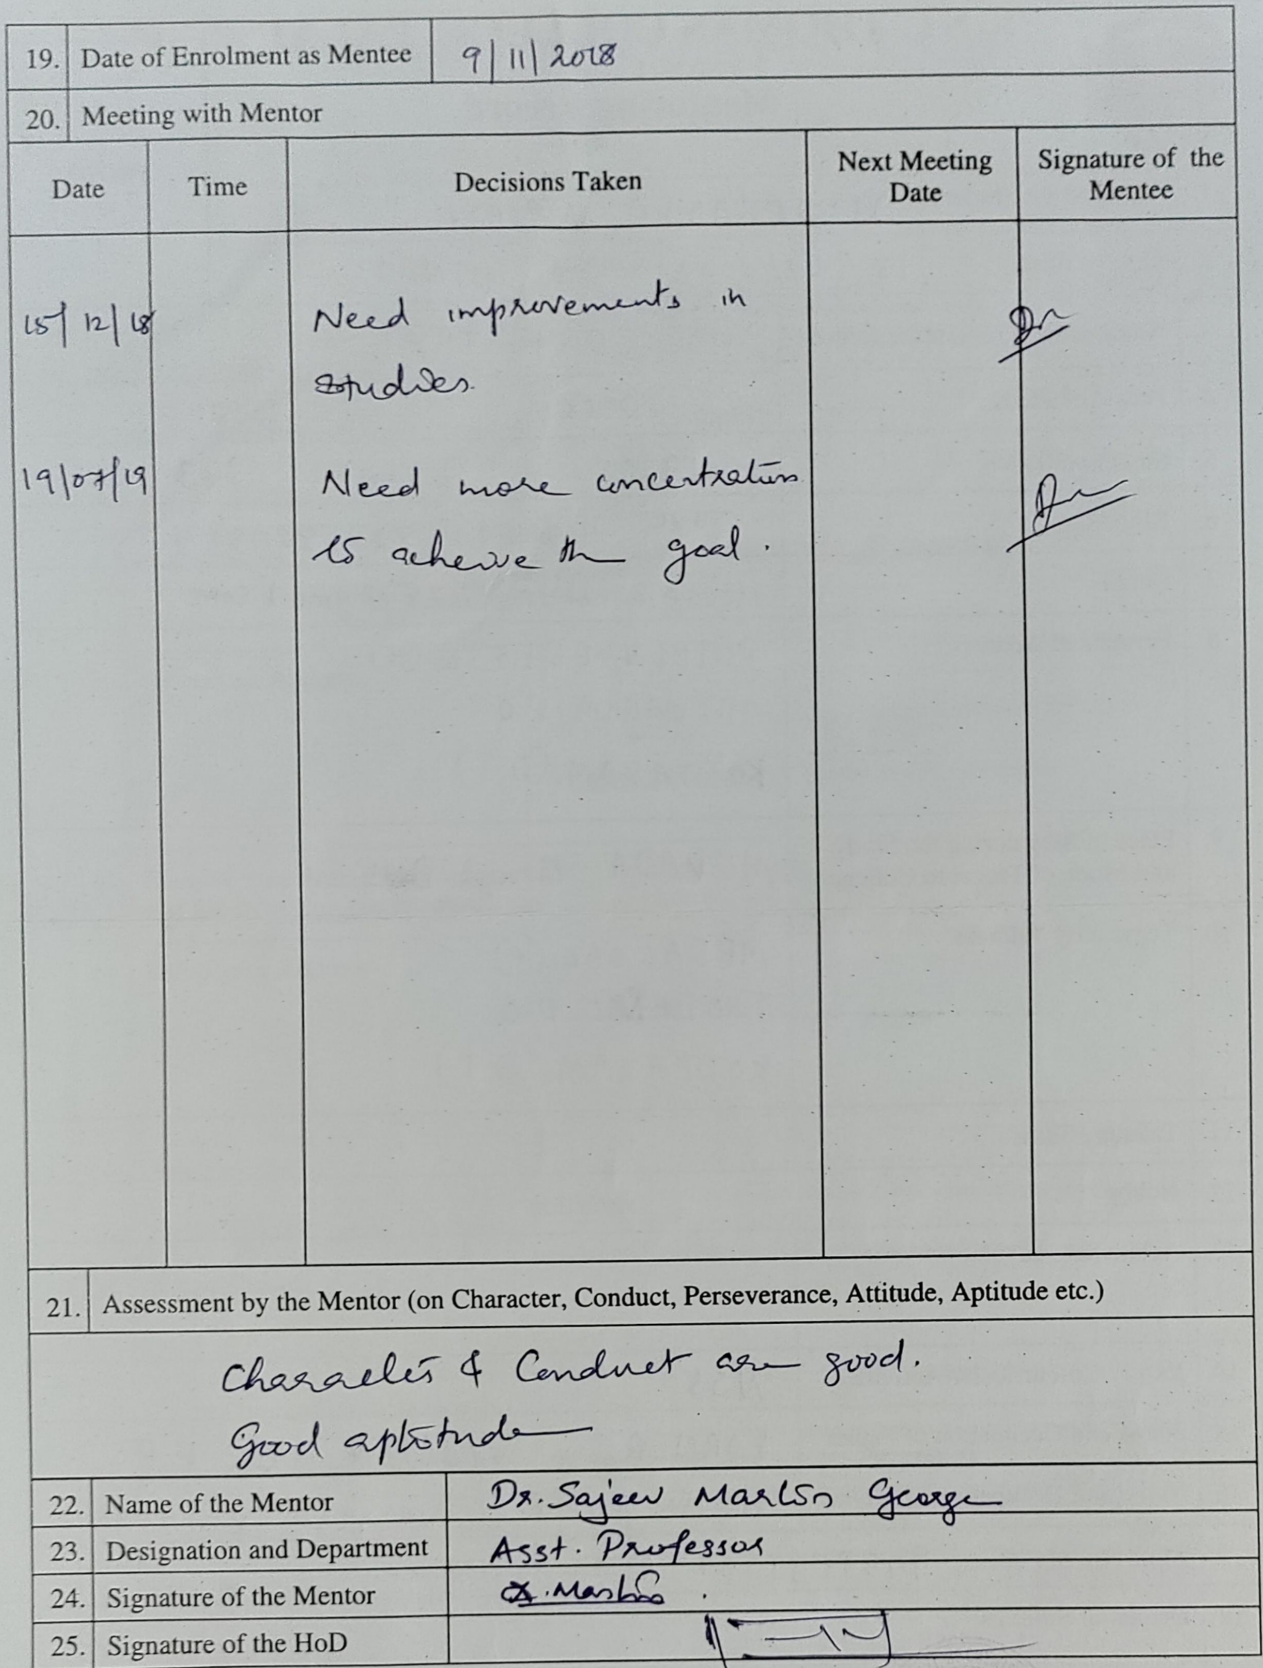 19. Date of Enrolment as Mentee 9/11/2018
20. Meeting with Mentor
Date Time Decisions Taken Next Meeting Date Signature of the Mentee
15/12/18 Need improvements in
studies.
19/07/19 Need more concentration
to acheive the goal.
21. Assessment by the Mentor (on Character, Conduct, Perseverance, Attitude, Aptitude etc.)
Character & Conduct are good.
Good aptitude
22. Name of the Mentor Dr. Sajeev Martin George
23. Designation and Department Asst. Professor
24. Signature of the Mentor Martin
25. Signature of the HoD